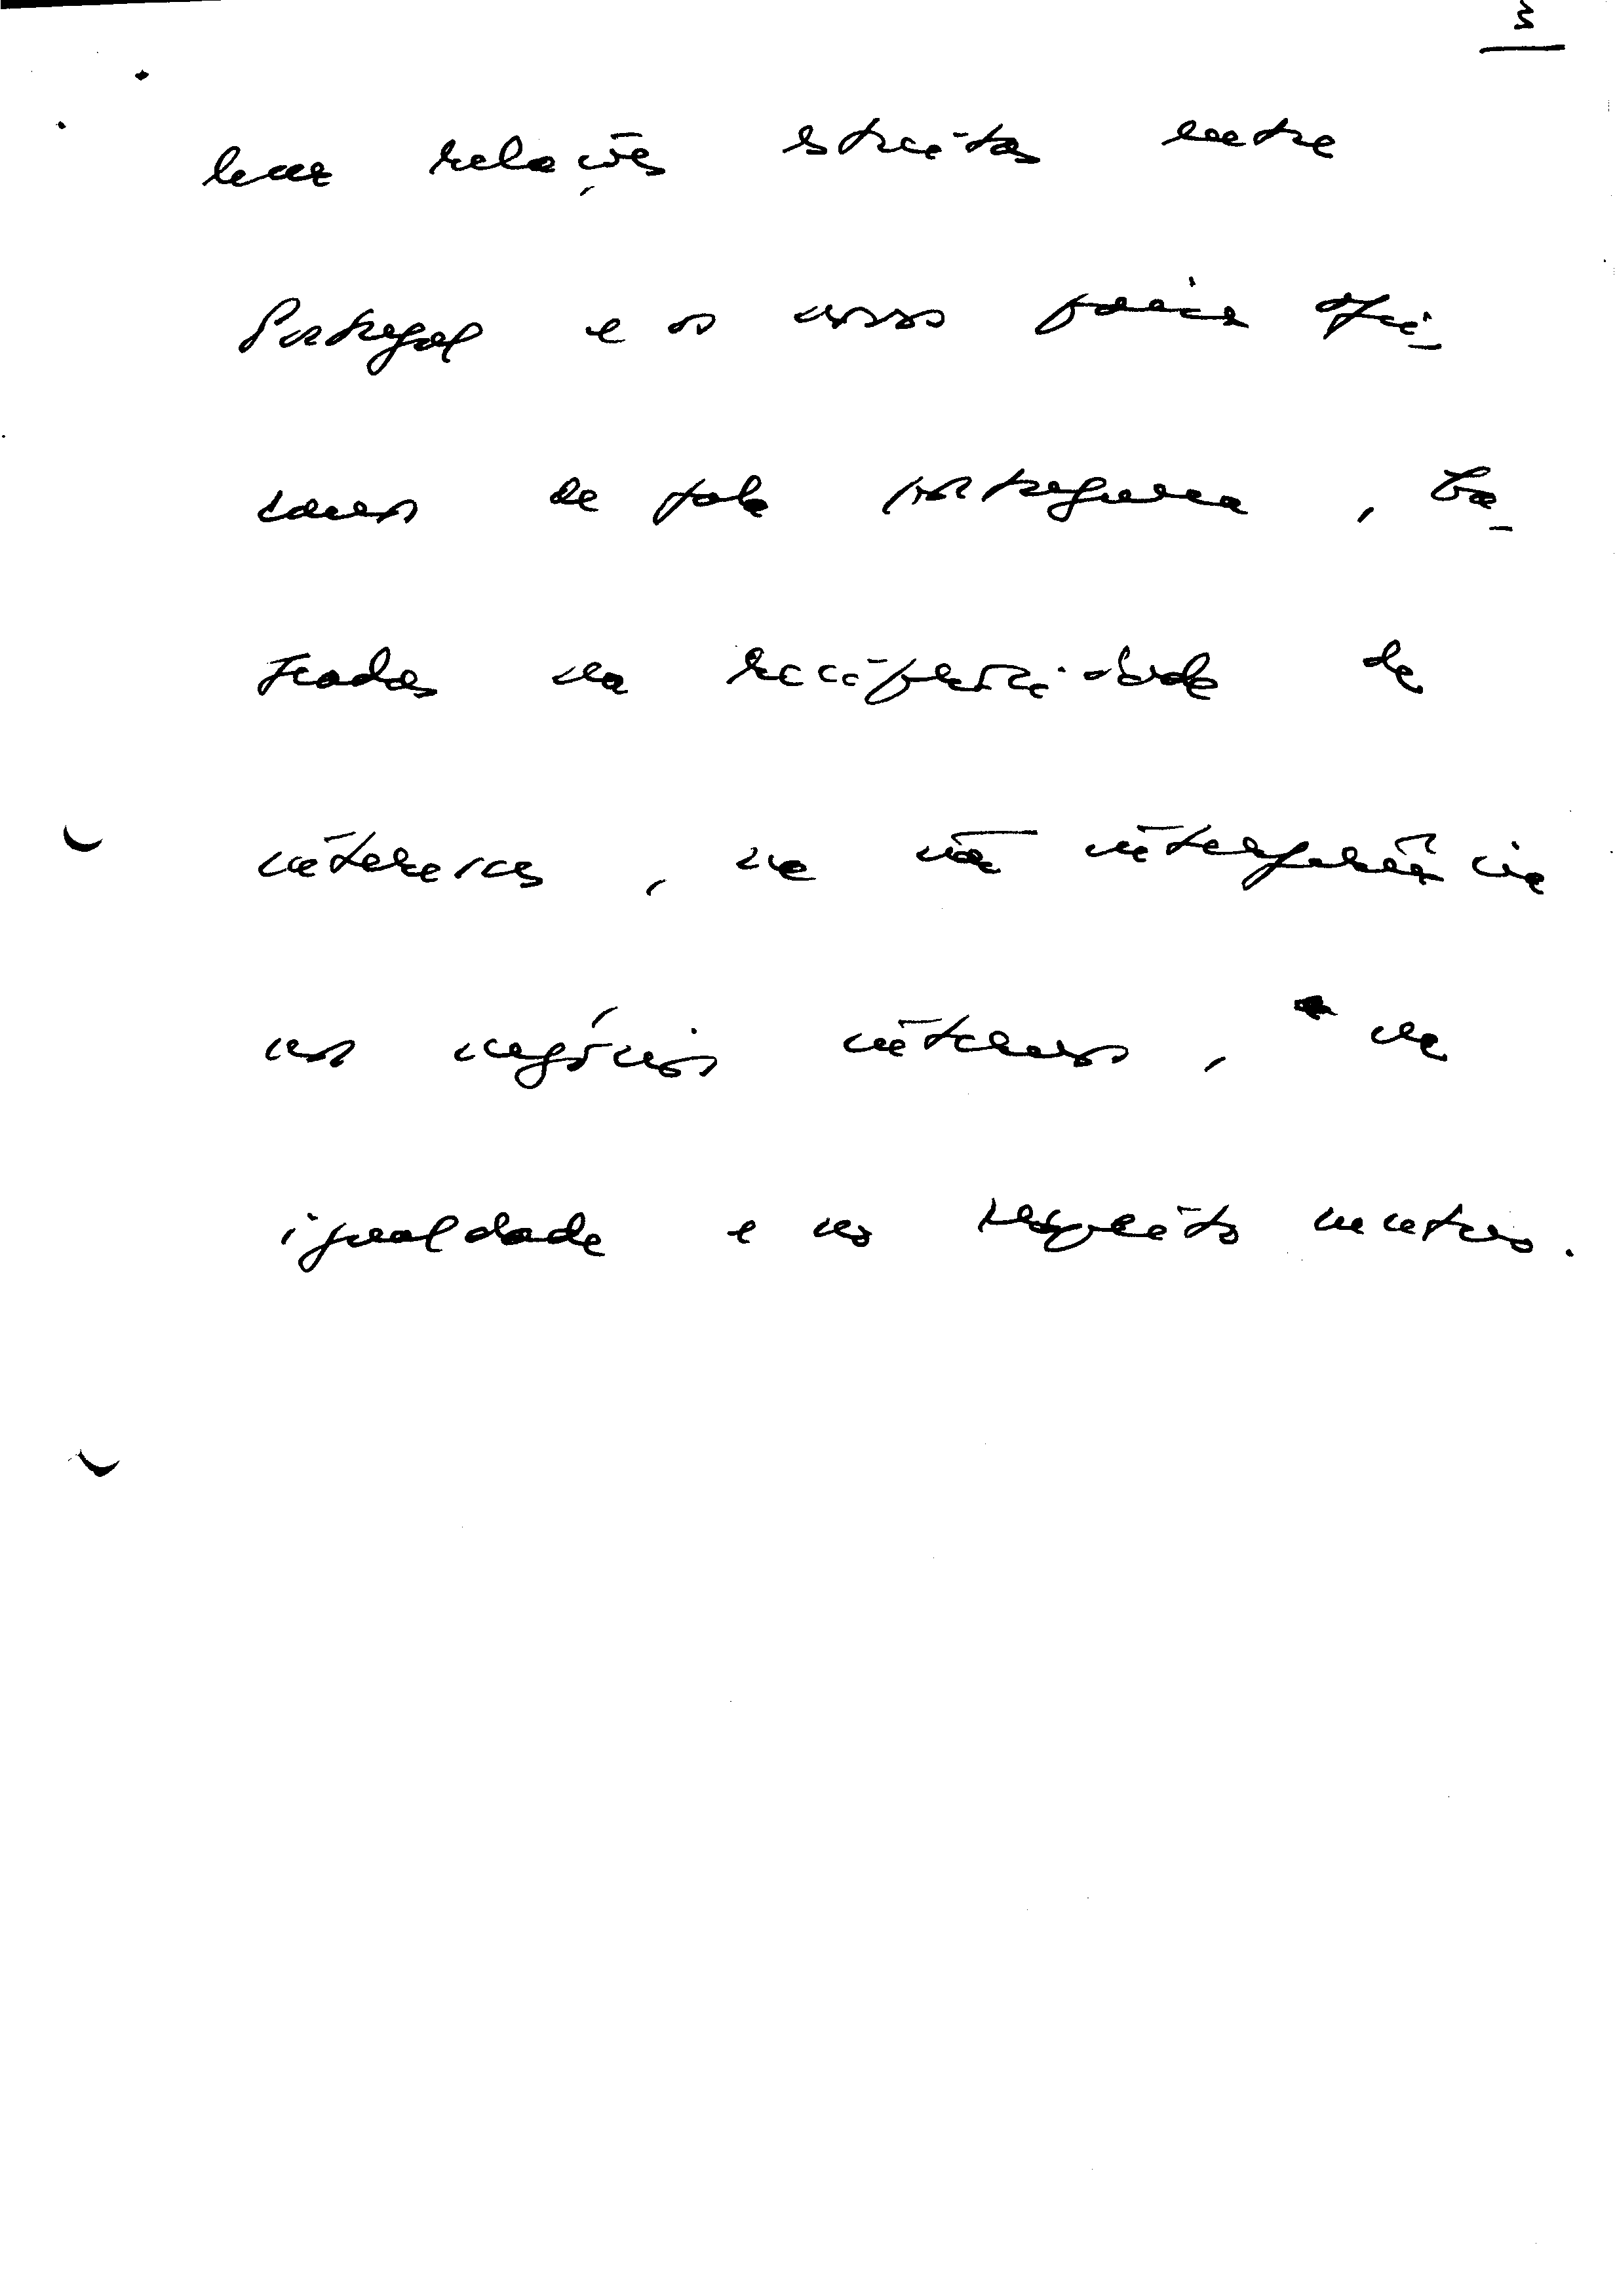 3
bem relações estreitas entre
Portugal e os novos países afri-
canos de fala portuguesa, ba-
seadas na reciprocidade de
interesses, na não ingerência
nos negócios internos, na
igualdade e no respeito mútuo.